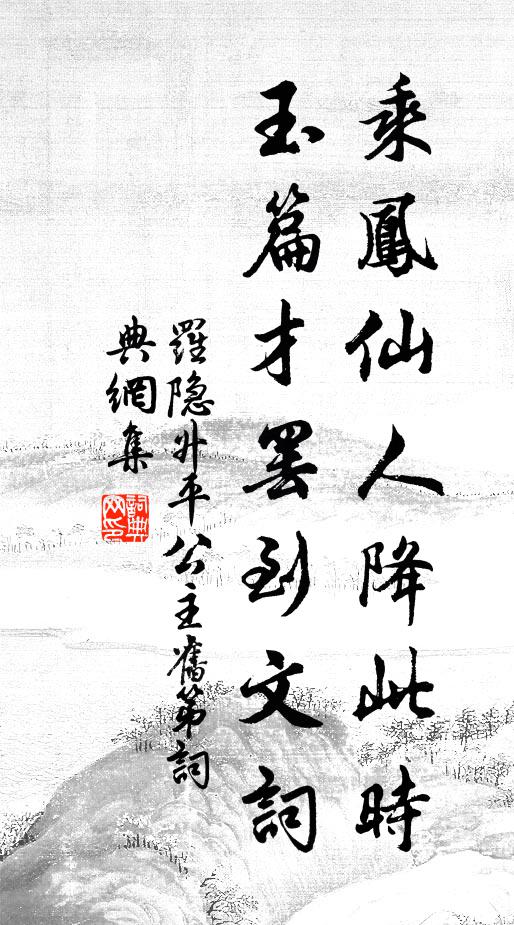 乘鳳仙人降此時
玉篇才罢到文詞
羅隐升平公主舊第詞
典網集
詞典网印